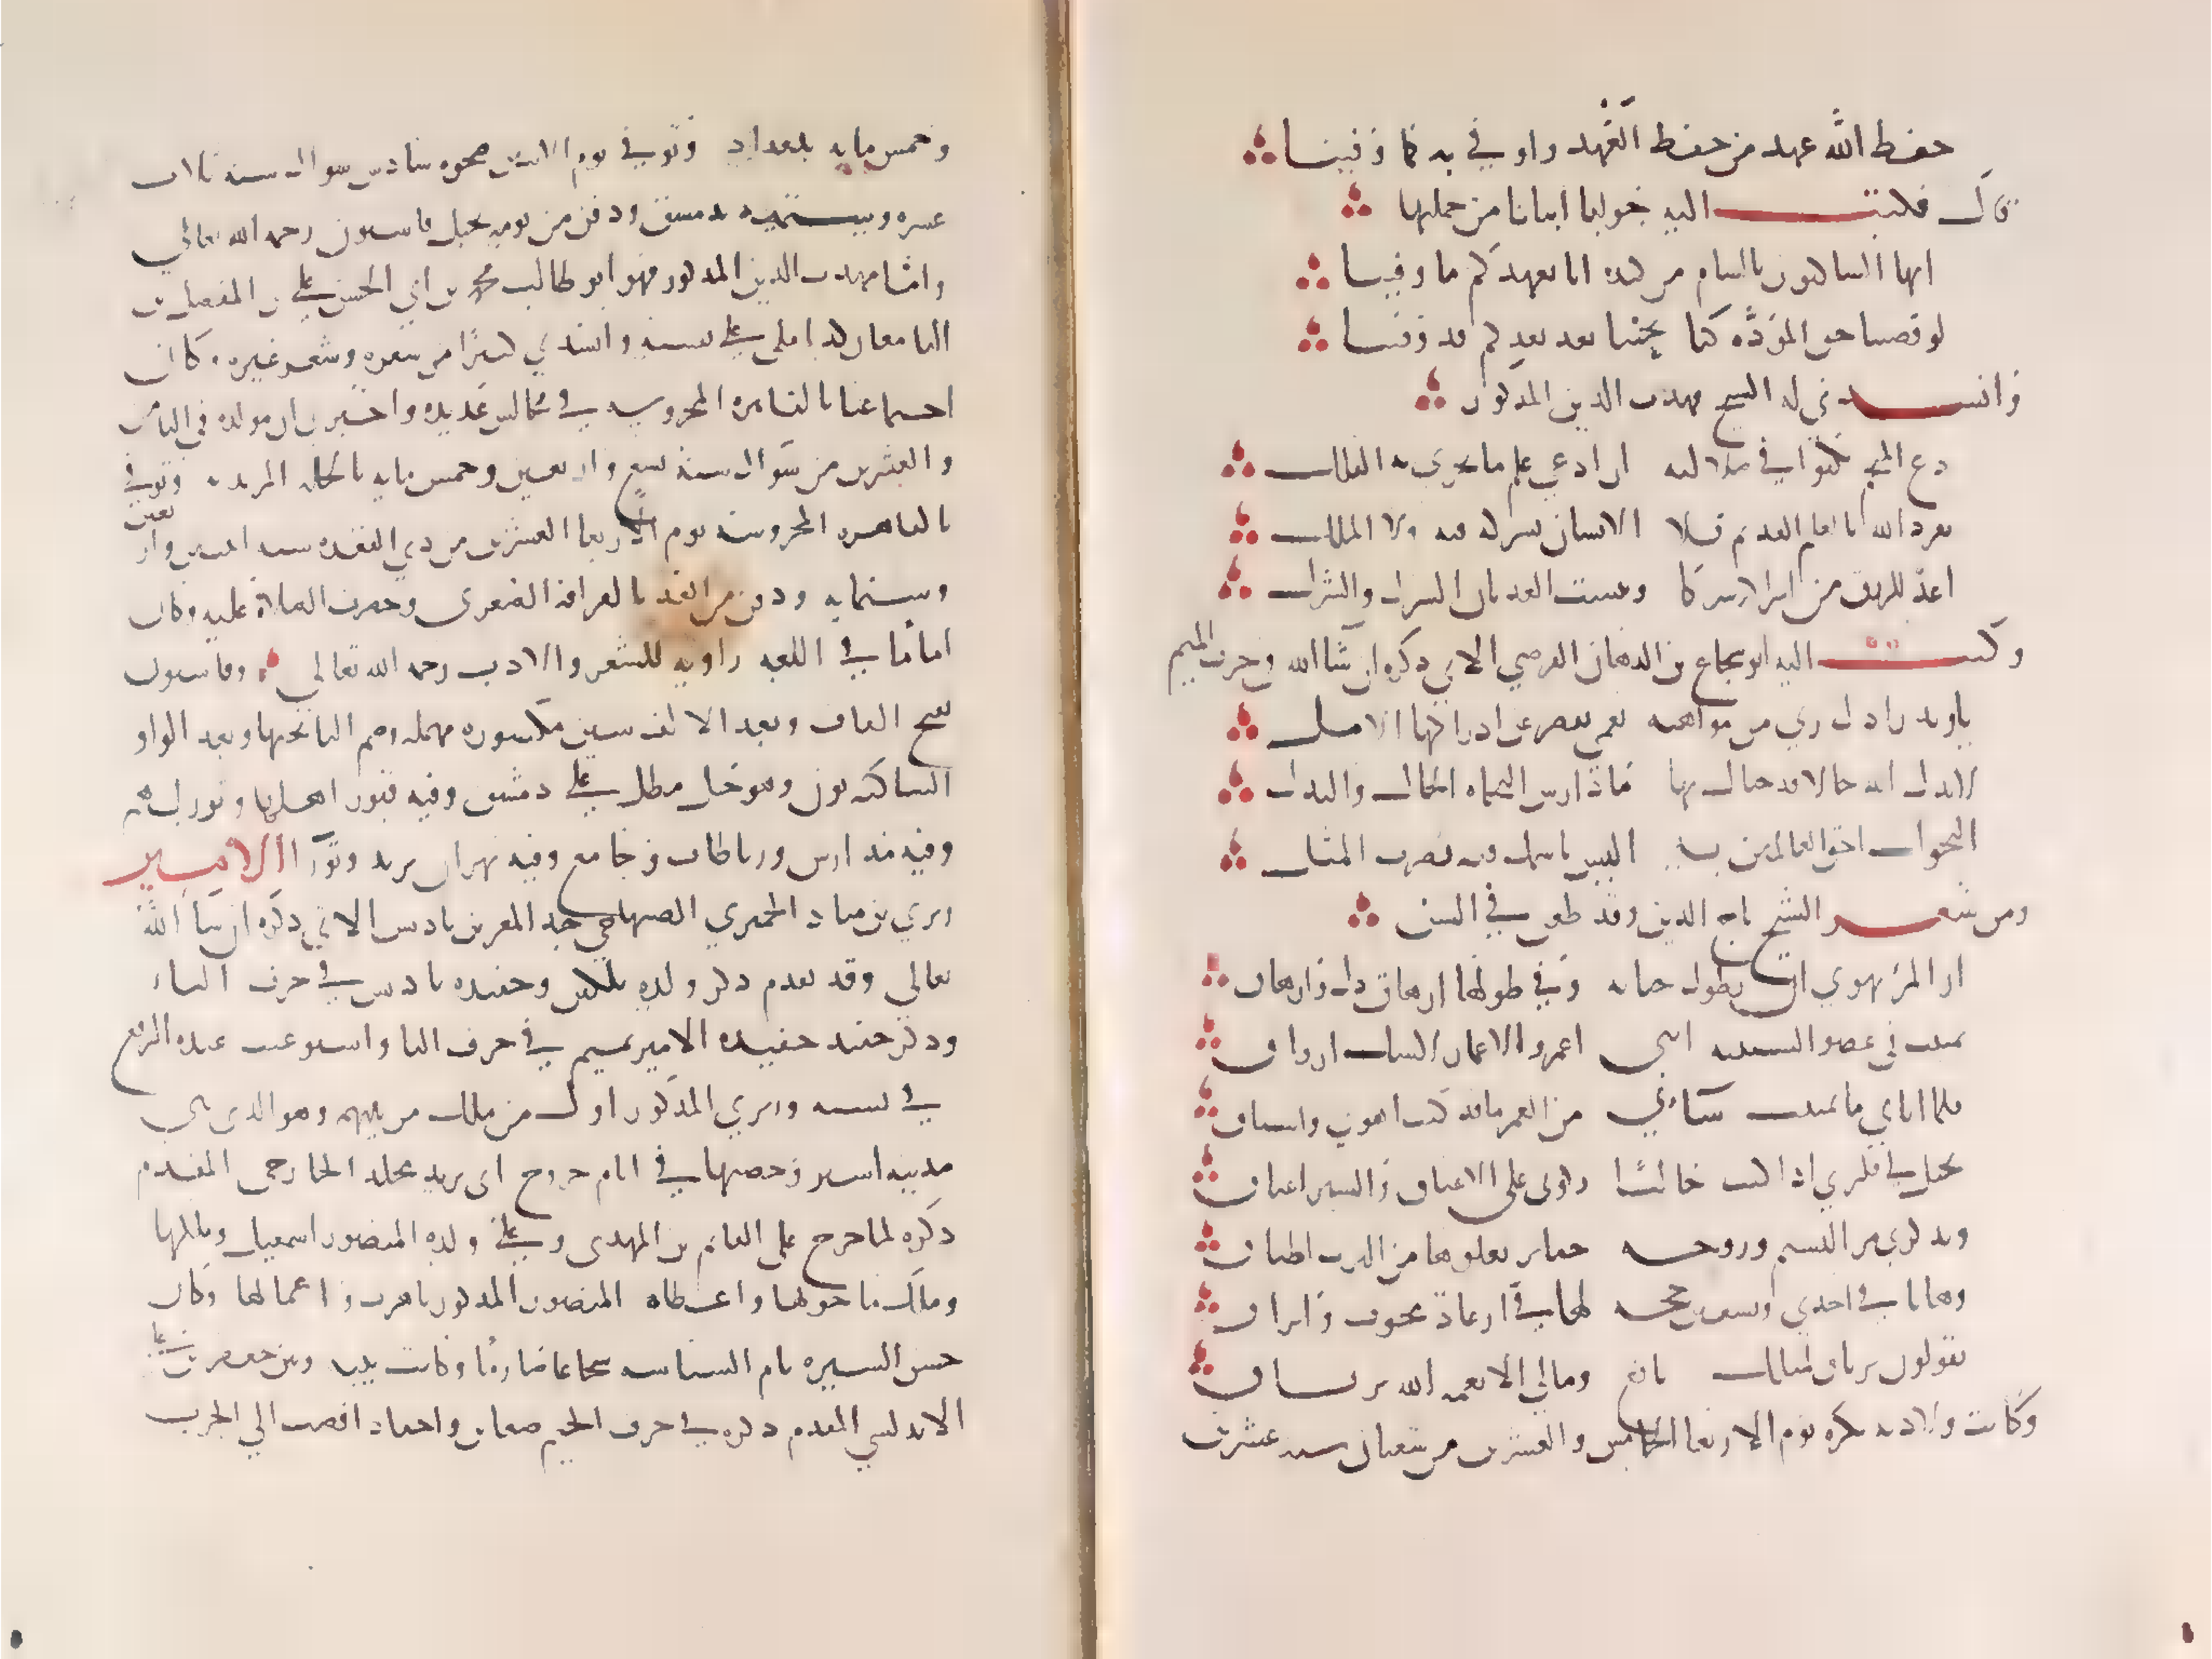 حفظ الله عهد من حفظ العهد واوفي به كما وفينا
قال فكتبت اليه جوابها ابياتا من جملتها
ايها الساكنون بالشام من كنده انا بعهدكم ما وفينا
لو قضينا حق المودة كنا نحبنا بعد بعدكم قد قضينا
وانشدني له الشيخ مهذب الدين المذكور
دع المنجم يكبو في ضلالته ان ادعي علم ما يجري به الفلك
تفرد الله بالعلم القديم فلا الانسان يشركه فيه ولا الملك
اعد للرزق من اشراكه شركا وبئست العدتان الشرك والشرك
وكتب اليه ابو شجاع بن الدهان الفرضي الاتي ذكره ان شا الله في حرف الميم
يا زيد زادك ربي من مواهبه نعمي يقصر عن ادراكها الامل
لا بدل الله حالا قد حباك بها ما دار بين النحاه الحال والبدل
النحو انت احق العالمين به اليس باسمك فيه يضرب المثل
ومن شعر الشيخ تاج الدين وقد طعن في السن
اري المرء يهوي ان تطول حياته وفي طولها ارهاق ذل وازهاق
تمنيت في عصر الشبيبه انني اعمر والاعمار لا شك ارزاق
فلما اتاني ما تمنيت ساءني من العمر ما قد كنت اهوي واشتاق
يخيل لي فكري اذا كنت خاليا ركوبي علي الاعناق والسير اعناق
ويذكرني مر النسيم وروحه حفاير يعلوها من الترب اطباق
وها انا في احدي وتسعين حجه لها في ارعاد مخوف وابراق
يقولون ترياق لمثلك نافع ومالي الا رحمه الله ترياق
وكانت ولادته بكره يوم الاربعا الخامس والعشرين من شعبان سنه عشرين
وخمس مايه ببغداد وتوفي يوم الاثنين ضحوه سادس شوال سنه ثلاث
عشره وستمايه بدمشق ودفن من يومه بجبل قاسيون رحمه الله تعالي
واما مهذب الدين المذكور فهو ابو طالب محمد بن ابي الحسن علي بن المفضل بن
التامغاز كذا املي علي نسبه وانشدني كثيرا من شعره وشعر غيره وكان
اجتماعنا بالقاهره المحروسه في مجالس عديده واخبرني ان مولده في الثامن
والعشرين من شوال سنه تسع واربعين وخمس مايه بالحله المزيديه وتوفي
بالقاهره المحروسه يوم الاربعا العشرين من ذي القعده سنه اثنتين واربعين
وستمايه ودفن من الغد بالقرافه الصغري وحضرت الصلاة عليه وكان
اماما في اللغه راويه للشعر والادب رحمه الله تعالي وقاسيون
بفتح القاف وبعد الالف سين مكسوره مهمله وضم اليا تحتها وبعد الواو
الساكنه نون وهو جبل مطل علي دمشق وفيه قبور اهلها وتربهم
وفيه مدارس ورباطات وجامع وفيه نهران يزيد وثورا الامير
زيري بن مناد الحميري الصنهاجي جد المعز بن باديس الاتي ذكره ان شا الله
تعالي وقد تقدم ذكر ولده بلكين وحفيده باديس في حرف الباء
وذكر حفيد حفيده الامير تميم في حرف التا واستوعبت عنده الرفع
في نسبه وزيري المذكور اول من ملك من بيتهم وهو الذي بني
مدينه اشير وحصنها في ايام خروج ابي يزيد مخلد الخارجي المقدم
ذكره لما خرج علي القائم بن المهدي وعلي ولده المنصور اسمعيل وملكها
وملك ما حولها واعطاه المنصور المذكور تاهرت واعمالها وكان
حسن السيره تام السياسه شجاعا صارما وكانت بينه وبين جعفر بن علي
الاندلسي المقدم ذكره في حرف الجيم ضغاين واحقاد افضت الي الحرب